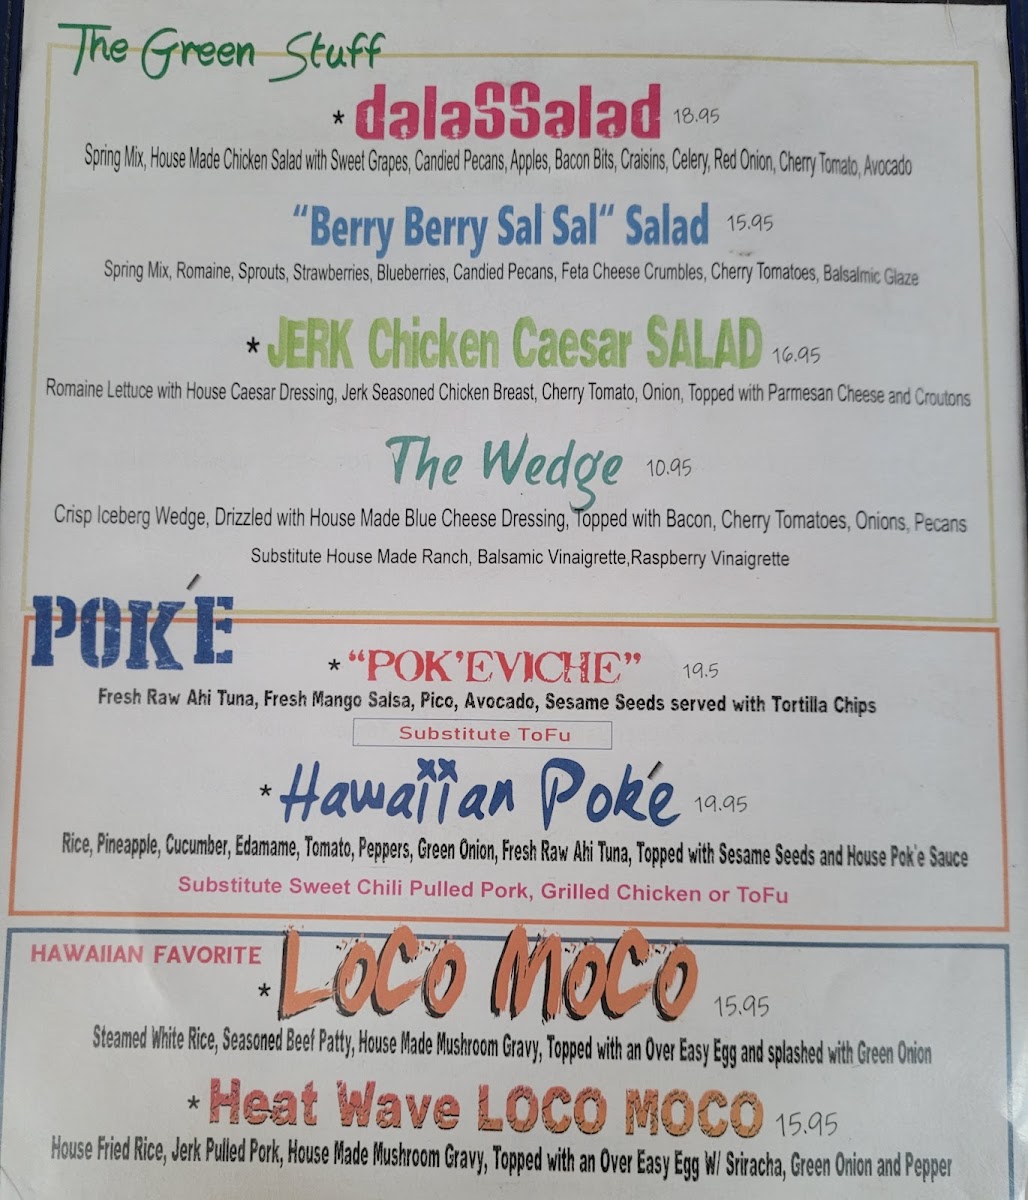 The Green Stuff
* dalaSSalad 18.95
Spring Mix, House Made Chicken Salad with Sweet Grapes, Candied Pecans, Apples, Bacon Bits, Craisins, Celery, Red Onion, Cherry Tomato, Avocado
“Berry Berry Sal Sal“ Salad 15.95
Spring Mix, Romaine, Sprouts, Strawberries, Blueberries, Candied Pecans, Feta Cheese Crumbles, Cherry Tomatoes, Balsalmic Glaze
* JERK Chicken Caesar SALAD 16.95
Romaine Lettuce with House Caesar Dressing, Jerk Seasoned Chicken Breast, Cherry Tomato, Onion, Topped with Parmesan Cheese and Croutons
The Wedge 10.95
Crisp Iceberg Wedge, Drizzled with House Made Blue Cheese Dressing, Topped with Bacon, Cherry Tomatoes, Onions, Pecans
Substitute House Made Ranch, Balsamic Vinaigrette,Raspberry Vinaigrette
POK'E
* “POK’EVICHE” 19.5
Fresh Raw Ahi Tuna, Fresh Mango Salsa, Pico, Avocado, Sesame Seeds served with Tortilla Chips
Substitute ToFu
* Hawaiian Pok'e 19.95
Rice, Pineapple, Cucumber, Edamame, Tomato, Peppers, Green Onion, Fresh Raw Ahi Tuna, Topped with Sesame Seeds and House Pok'e Sauce
Substitute Sweet Chili Pulled Pork, Grilled Chicken or ToFu
HAWAIIAN FAVORITE
* LoCo MoCo 15.95
Steamed White Rice, Seasoned Beef Patty, House Made Mushroom Gravy, Topped with an Over Easy Egg and splashed with Green Onion
* Heat Wave LOCO MOCO 15.95
House Fried Rice, Jerk Pulled Pork, House Made Mushroom Gravy, Topped with an Over Easy Egg W/ Sriracha, Green Onion and Pepper